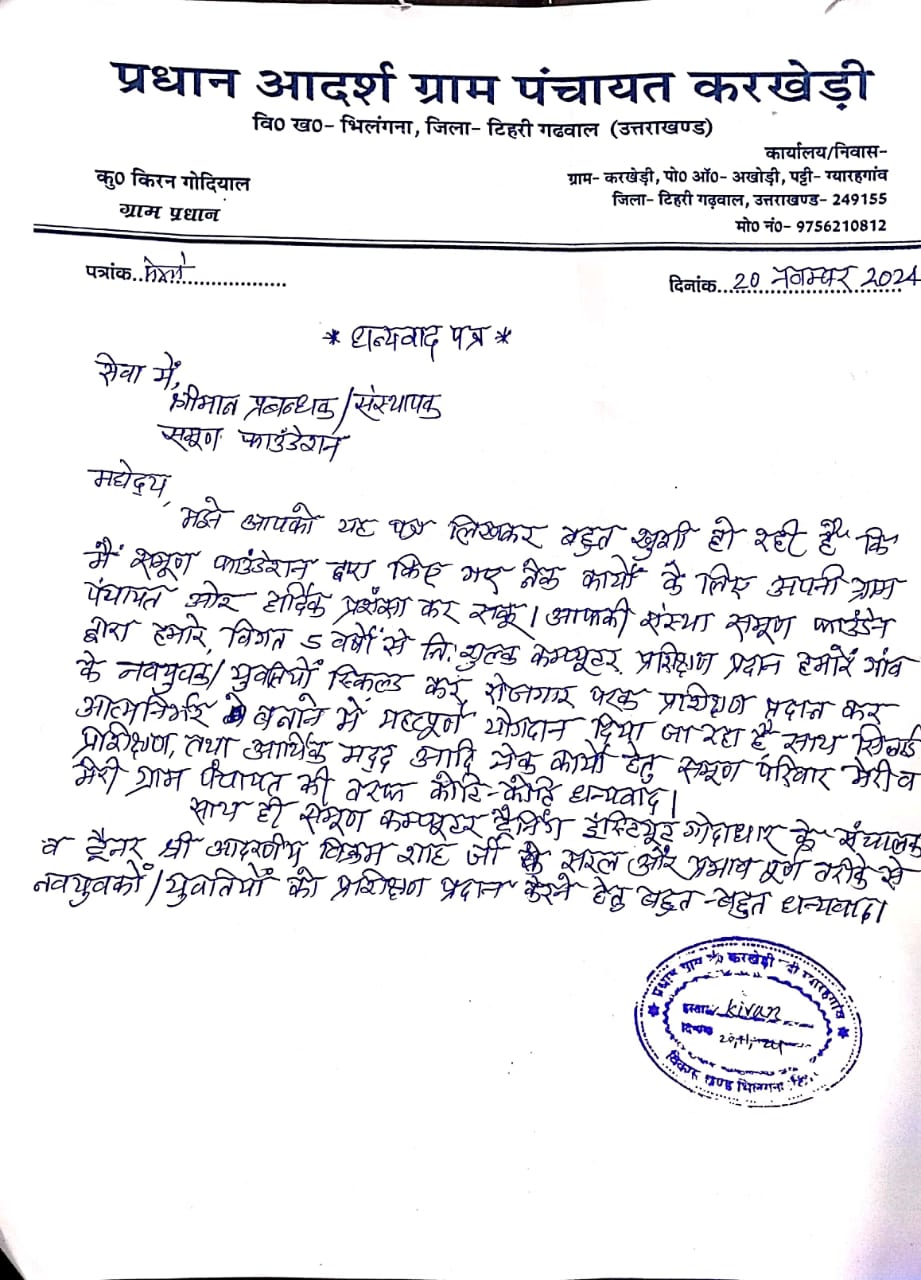 प्रधान आदर्श ग्राम पंचायत करखेड़ी
वि0 ख0- भिलंगना, जिला- टिहरी गढवाल (उत्तराखण्ड)
कार्यालय/निवास-
कु0 किरन गोदियाल
ग्राम- करखेड़ी, पो0 ऑ0- अखोड़ी, पट्टी- ग्यारहगांव
ग्राम प्रधान
जिला- टिहरी गढ़वाल, उत्तराखण्ड- 249155
मो0 नं0- 9756210812
पत्रांक..
दिनांक...20 नवम्बर 2024
* धन्यवाद पत्र *
सेवा में,
श्रीमान प्रबन्धक/संस्थापक
समूण फाउंडेशन
महोदय,
मुझे आपको यह पत्र लिखकर बहुत खुशी हो रही है कि
मैं समूण फाउंडेशन द्वारा किए गए नेक कार्यो के लिए अपनी ग्राम
पंचायत ओर हार्दिक प्रशंसा कर सकू। आपकी संस्था समूण फाउंडेन
द्वारा हमारे, विगत 5 वर्षो से नि:शुल्क कम्प्यूटर प्रशिक्षण प्रदान हमारे गांव
के नवयुवक/युवतियों स्किल्ड कर रोजगार परक प्रशिक्षण प्रदान कर
आत्मनिर्भर बनाने में महत्पूर्ण योगदान दिया जा रहा है साथ सिलाई
प्रशिक्षण, तथा आर्थिक मदद आदि नेक कार्यो हेतु समूण परिवार मेरी व
मेरी ग्राम पंचायत की तरफ कोटि-कोटि धन्यवाद।
साथ ही समूण कम्प्यूटर ट्रैनिंग इंस्टिट्यूट गोदाधार के संचालक
व ट्रैनर श्री आदरणीय विक्रम शाह जी के सरल और प्रभाव पूर्ण तरीके से
नवयुवकों/युवतियों को प्रशिक्षण प्रदान करने हेतु बहुत-बहुत धन्यवाद।
प्रधान ग्राम पं0 करखेड़ी ग्यारहगांव
हस्ता0 Kiran
दिनांक 20/11/24
विकास खण्ड भिलंगना